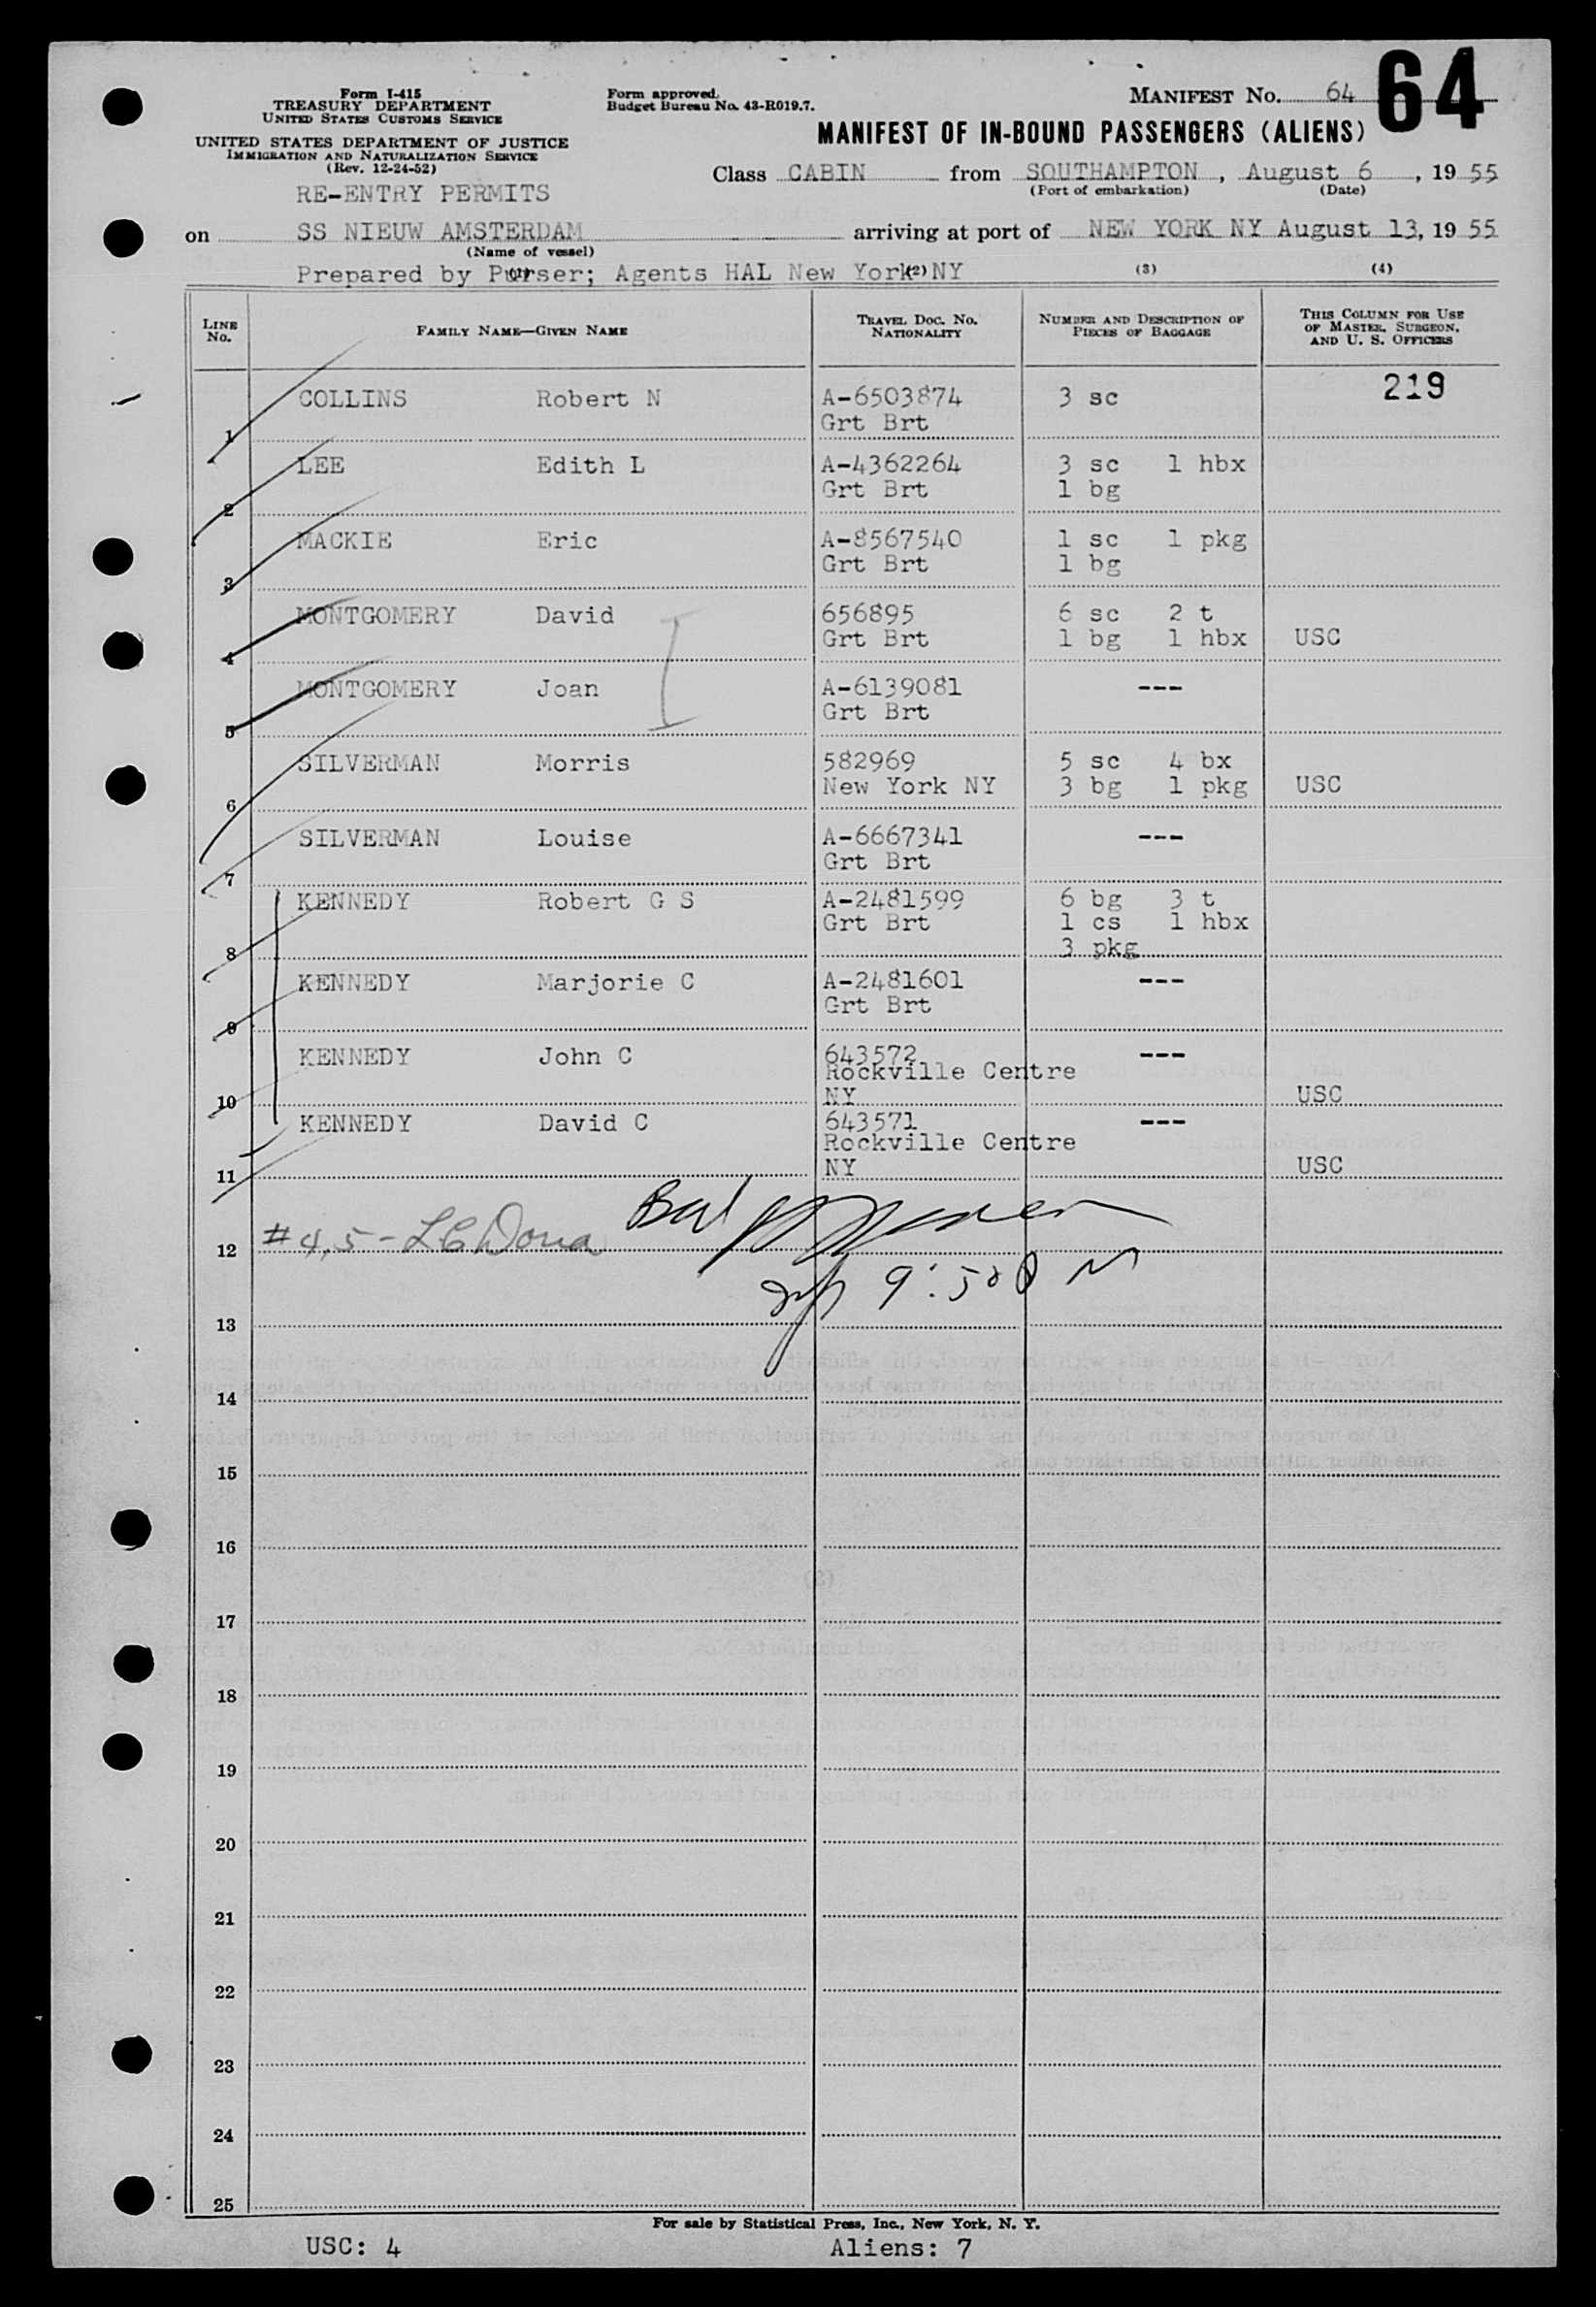 Form I-415
TREASURY DEPARTMENT
UNITED STATES CUSTOMS SERVICE
UNITED STATES DEPARTMENT OF JUSTICE
IMMIGRATION AND NATURALIZATION SERVICE
(Rev. 12-24-52)
Form approved.
Budget Bureau No. 43-R019.7.
MANIFEST No. 64 64
MANIFEST OF IN-BOUND PASSENGERS (ALIENS)
Class CABIN from SOUTHAMPTON, August 6, 19 55
(Port of embarkation) (Date)
RE-ENTRY PERMITS
on SS NIEUW AMSTERDAM arriving at port of NEW YORK NY August 13, 19 55
(Name of vessel)
Prepared by Purser; Agents HAL New York NY
(1) (2) (3) (4)
LINE No. FAMILY NAME—GIVEN NAME TRAVEL DOC. No. NATIONALITY NUMBER AND DESCRIPTION OF PIECES OF BAGGAGE THIS COLUMN FOR USE OF MASTER, SURGEON, AND U. S. OFFICERS
219
COLLINS Robert N A-6503874 3 sc
1 Grt Brt
LEE Edith L A-4362264 3 sc 1 hbx
2 Grt Brt 1 bg
MACKIE Eric A-8567540 1 sc 1 pkg
3 Grt Brt 1 bg
MONTGOMERY David 656895 6 sc 2 t
4 Grt Brt 1 bg 1 hbx USC
MONTGOMERY Joan A-6139081 ---
5 Grt Brt
SILVERMAN Morris 582969 5 sc 4 bx
6 New York NY 3 bg 1 pkg USC
SILVERMAN Louise A-6667341 ---
7 Grt Brt
KENNEDY Robert G S A-2481599 6 bg 3 t
Grt Brt 1 cs 1 hbx
8 3 pkg
KENNEDY Marjorie C A-2481601 ---
9 Grt Brt
KENNEDY John C 643572 ---
Rockville Centre
10 NY USC
KENNEDY David C 643571 ---
Rockville Centre
11 NY USC
12 #4,5-
13 9:50 P M
14
15
16
17
18
19
20
21
22
23
24
25
For sale by Statistical Press, Inc., New York, N. Y.
USC: 4 Aliens: 7